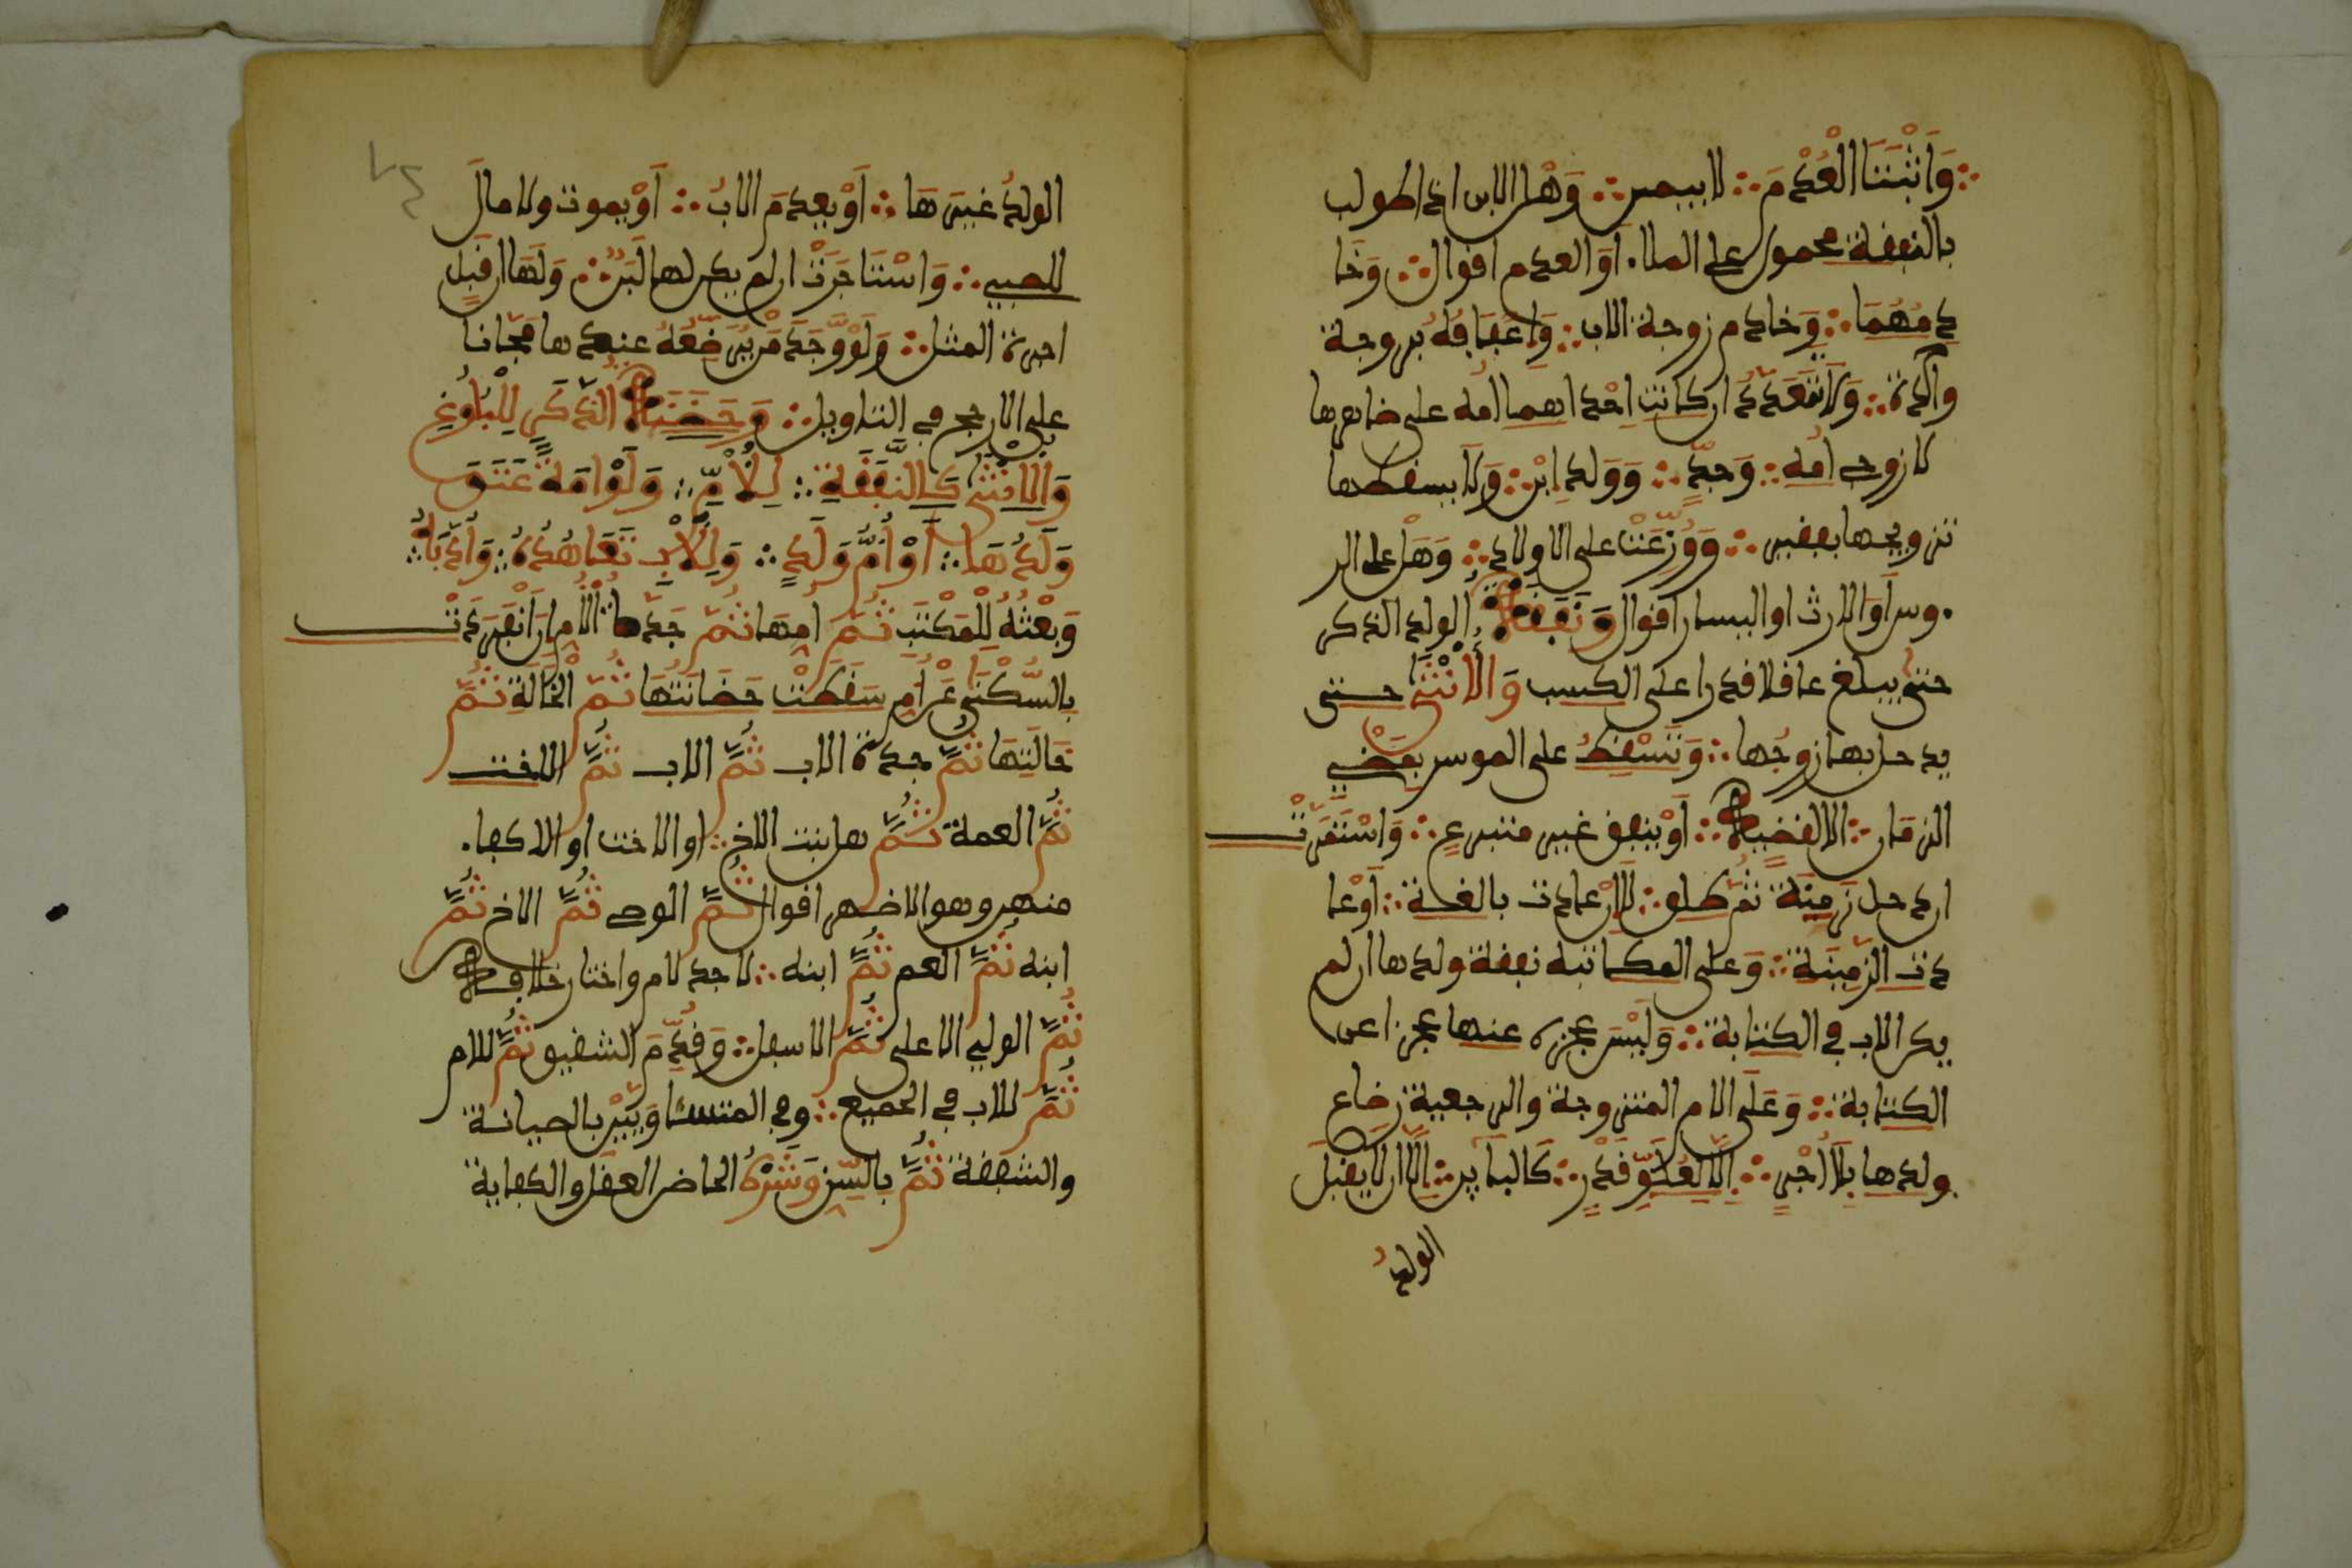 وَاثْبَتَا الْعُدْمَ لا بيمين وَهْل الابن اذا طولب
بالنفقة محمول على الملا. أَوَ العدم اقوال وَخَا
دِمُهُمَا وَخادم زوجة الاب وَإِعْفَافُهُ بزوجة
وَاحدة وَلَا تَتَعَدَّدُ ان كانت احْداهما امُّه على ضاهرها
لا زوج امِّه وَجدٍّ وَوَلدِ ابْن وَلَا يسقطها
تزويجها بفقير وَوُزِّعَتْ على الاولاد وَهَلْ على الر
.وس أَوَ الارث او اليسار اقوال وَنَفَقَةُ الولد الذكر
حتى يبلغ عاقلا قادرا على الكسب وَالْأُنْثَى حتى
يدخل بها زوجُها وَتَسْقُطُ على الموسر بِمُضِيِّ
الزمَان الا لقضيةٍ أَوْ ينفق غير متبرعٍ وَاسْتَمَرَّتْ
ان دخل زَمِنَةً ثُمَّ طلق لَا إِنْ عادت بالغة أَوْ عا
دت الزمِنَة وَعَلى المكاتبة نفقة ولدها ان لم
يكن الاب في الكتابة وَلَيْسَ عجزه عنها عجزا عن
الكتابة وَعَلَى الام المتزوجة والرجعية رضاع
ولدها بِلَا أَجْرٍ إِلَّا لِعُلُوِّ قَدْرٍ كالبائن إِلَّا ان لا يقبل
الولدُ
الولدُ غيرَهَا أَوْ يعدمَ الابُ أَوْ يموت ولا مالَ
للصبي وَاسْتَأجَرَتْ ان لم يكن لها لَبَنٌ وَلَهَا ان قَبِل
اجرة المثل وَلَوْ وَّجَدَ مَنْ يُّرَضِّعُهُ عندها مَجَّانا
على الارجح في التاويل وَحَضَنَةُ الذَّكَرِ لِلْبُلُوغِ
وَالأنْثى كَالنَّفَقَةِ لِلْأُمِّ وَلَوْ امَةً عَتَقَ
وَلَدُهَا أَوْ أُمَّ وَلَدٍ وَلِلْأَبِ تَعَاهُدُهُ وَأَدَبُهُ
وَبَعْثُهُ لِلْمَكْتَبِ ثُمَّ امِّها ثُمَّ جَدَّةِ الْأُمِّ إِنِ انْفَرَدَتْ
بِالسُّكْنَى عَنْ أُمٍّ سَقَطَتْ حَضَانَتُهَا ثُمَّ الْخَالَةِ ثُمَّ
خَالَتِهَا ثُمَّ جدة الاب ثُمَّ الاب ثُمَّ الاخت
ثُمَّ العمة ثُمَّ هل بنت الاخ او الاخت او الاكفا.
منهن وهو الاضهر اقوال ثُمَّ الوصي ثُمَّ الاخ ثُمَّ
ابنه ثُمَّ العم ثُمَّ ابنه لا جد لام واختار خلافه
ثُمَّ الولي الاعلى ثُمَّ الاسفل وَقُدِّمَ الشقيق ثُمَّ للام
ثُمَّ للاب في الجميع وفي المتساوِيَيْن بالصيانة
والشفقة ثُمَّ بالسِّن وَشَرْطُ الحاضن العقل والكفاية